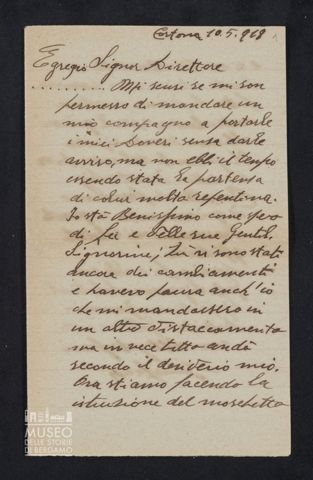 Cortona 10.5.918
Egregio Signor Direttore
......... Mi scusi se mi son
permesso di mandare un
mio compagno a portarle
i miei Doveri senza darle
avviso, ma non ebbi il tempo
essendo stata la partenza
di colui molta repentona.
Io stò Benissimo come spero
di Lei e Delle sue Gentili
Signorine; qui vi sono stati
ancora dei cambiamenti
e havevo paura anch'io
che mi mandassero in
un altro distaccamento
ma in vece tutto andò
secondo il desiderio mio.
Ora stiamo facendo la
istruzione del moschetto
MUSEO
DELLE STORIE
DI BERGAMO